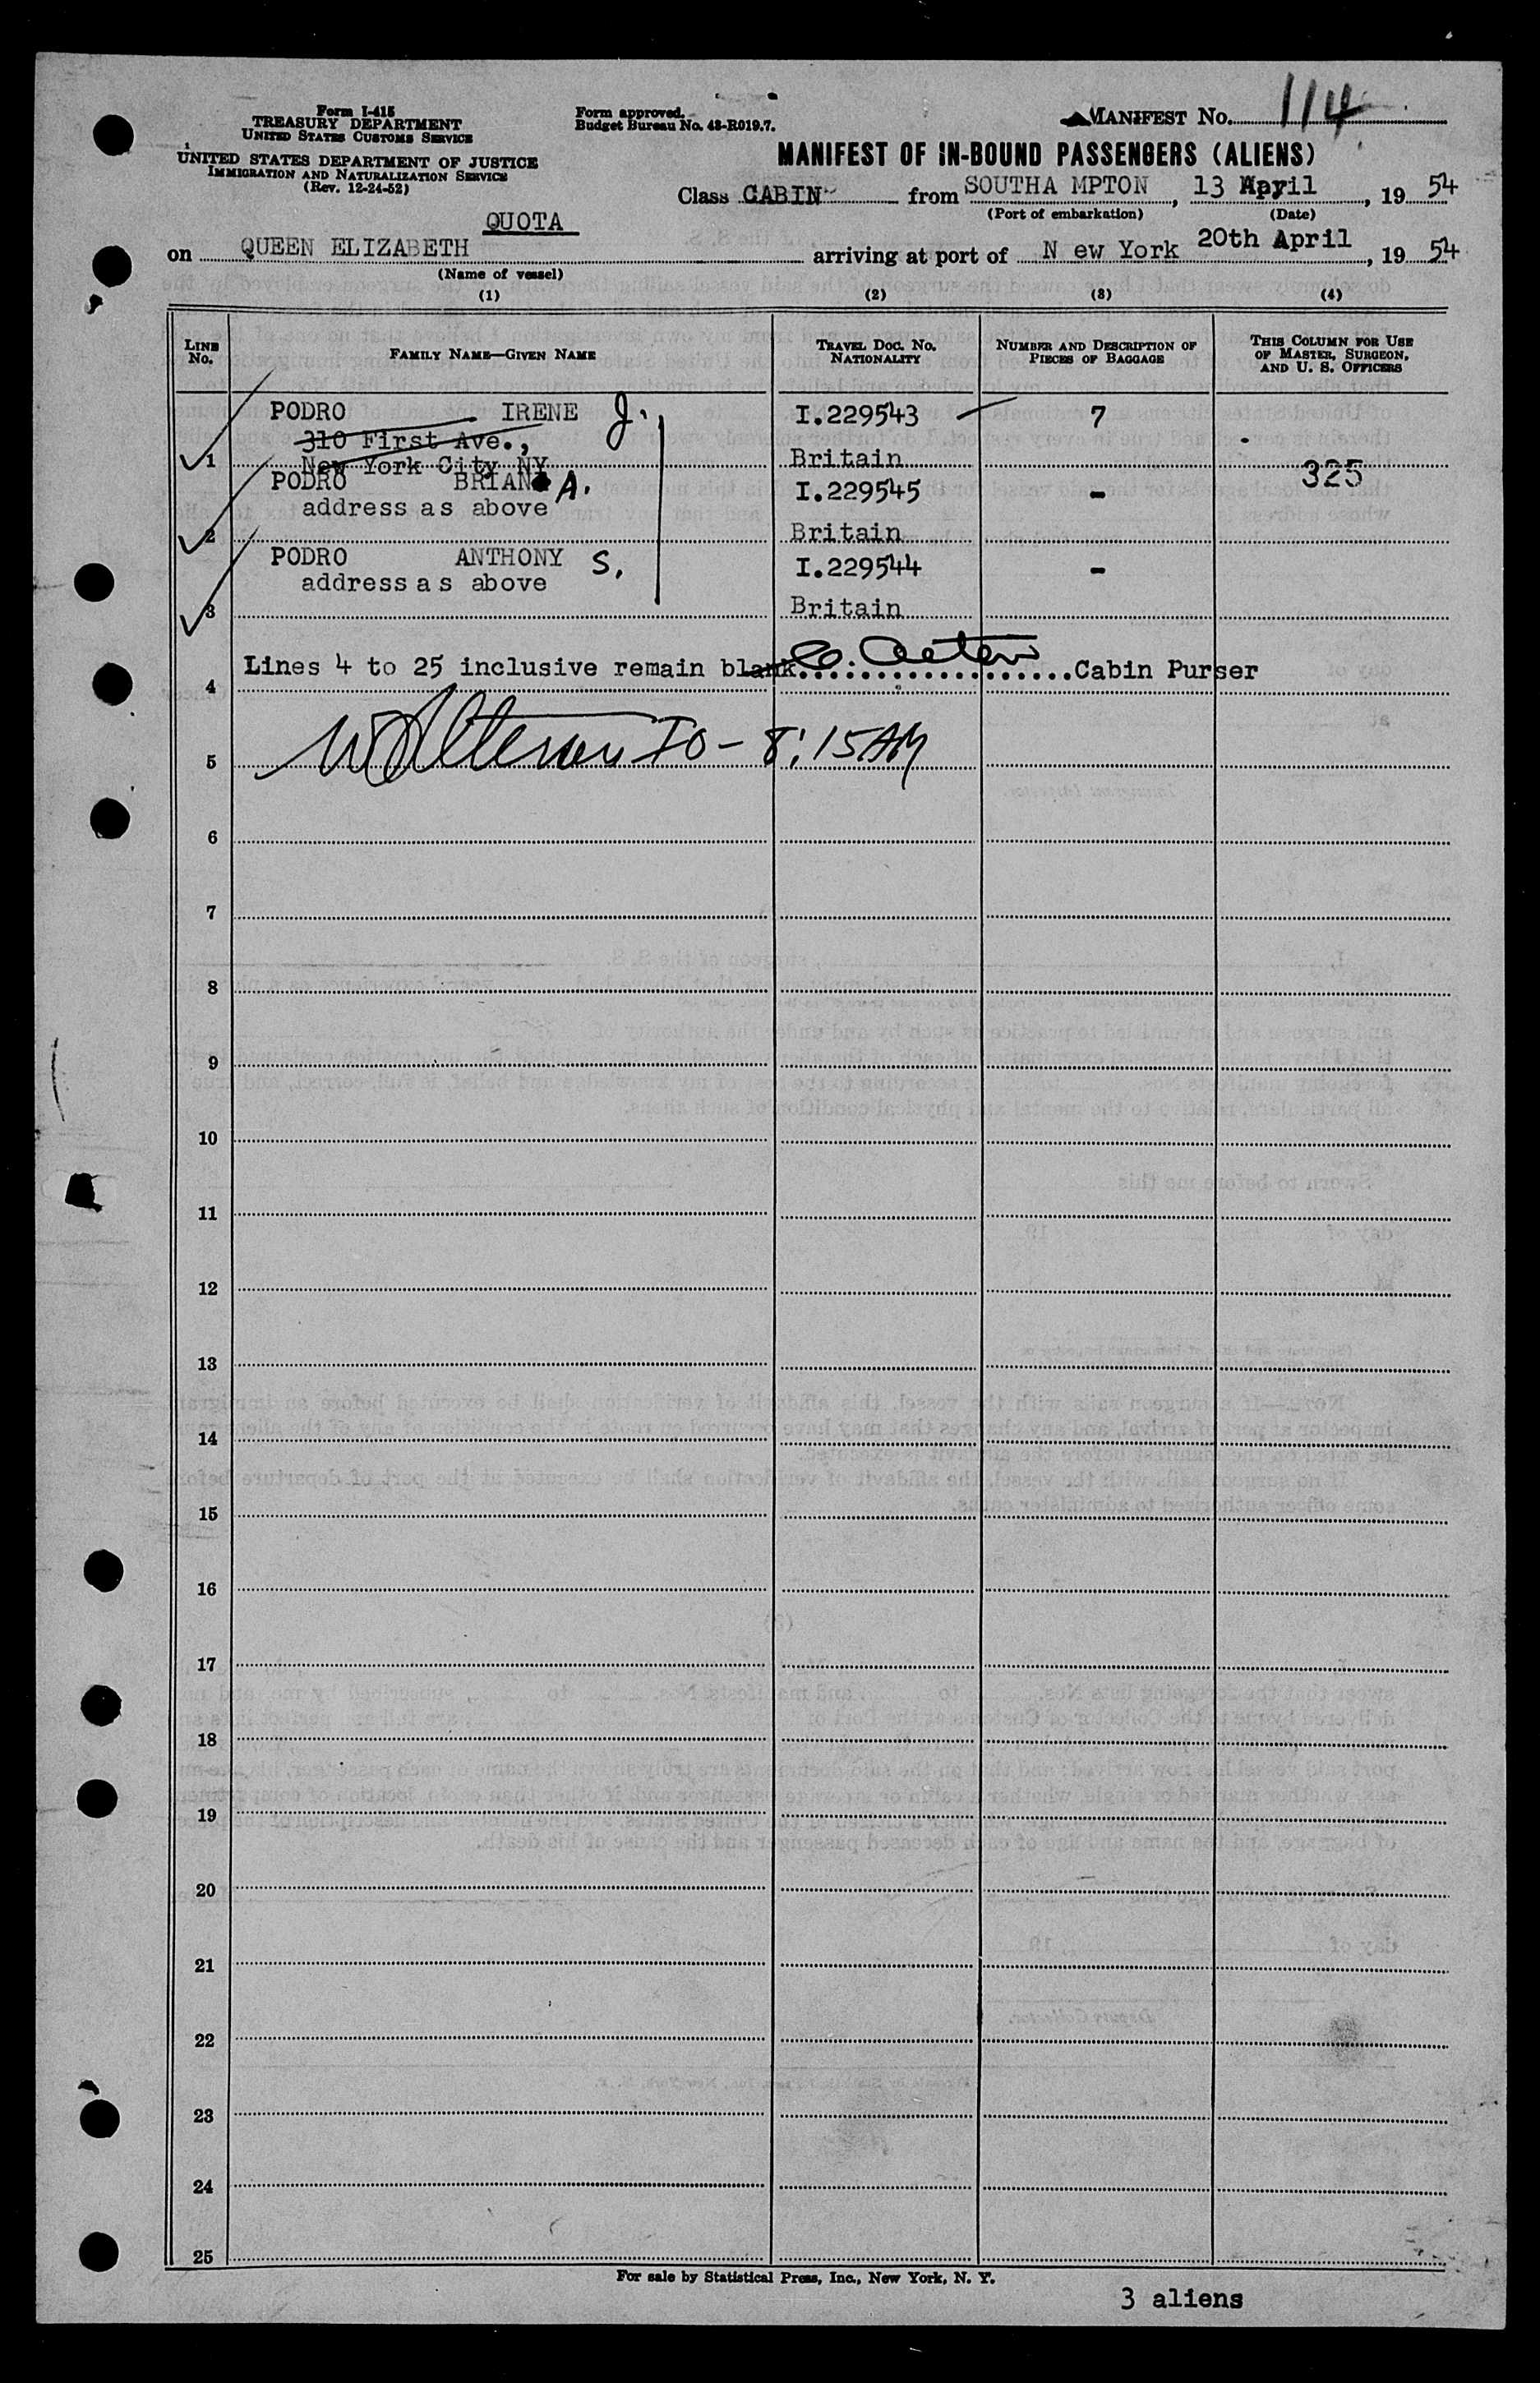 Form I-415
TREASURY DEPARTMENT
UNITED STATES CUSTOMS SERVICE
UNITED STATES DEPARTMENT OF JUSTICE
IMMIGRATION AND NATURALIZATION SERVICE
(Rev. 12-24-52)
Form approved.
Budget Bureau No. 43-R019.7.
MANIFEST No. 114
MANIFEST OF IN-BOUND PASSENGERS (ALIENS)
Class CABIN from SOUTHA MPTON, 13 April, 19 54
(Port of embarkation) (Date)
QUOTA
on QUEEN ELIZABETH arriving at port of N ew York 20th April, 19 54
(Name of vessel)
(1) (2) (3) (4)
LINE No. FAMILY NAME—GIVEN NAME TRAVEL DOC. No. NATIONALITY NUMBER AND DESCRIPTION OF PIECES OF BAGGAGE THIS COLUMN FOR USE OF MASTER, SURGEON, AND U. S. OFFICERS
PODRO IRENE J. I.229543 7
310 First Ave.,
1 New York City NY Britain 325
PODRO BRIAN A. I.229545 -
address as above
2 Britain
PODRO ANTHONY S. I.229544 -
address as above
3 Britain
Lines 4 to 25 inclusive remain blank...................Cabin Purser
4
5 IO - 8:15AM
6
7
8
9
10
11
12
13
14
15
16
17
18
19
20
21
22
23
24
25
For sale by Statistical Press, Inc., New York, N. Y.
3 aliens